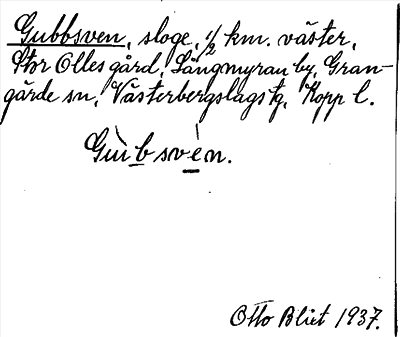 Gubbsven, sloge, 1/2 km. väster,
Stor Olles gård, Långmyran by, Gran-
gärde sn, Västerbergslags tg, Kopp l.
Gùbsvèn.
Otto Blixt 1937.